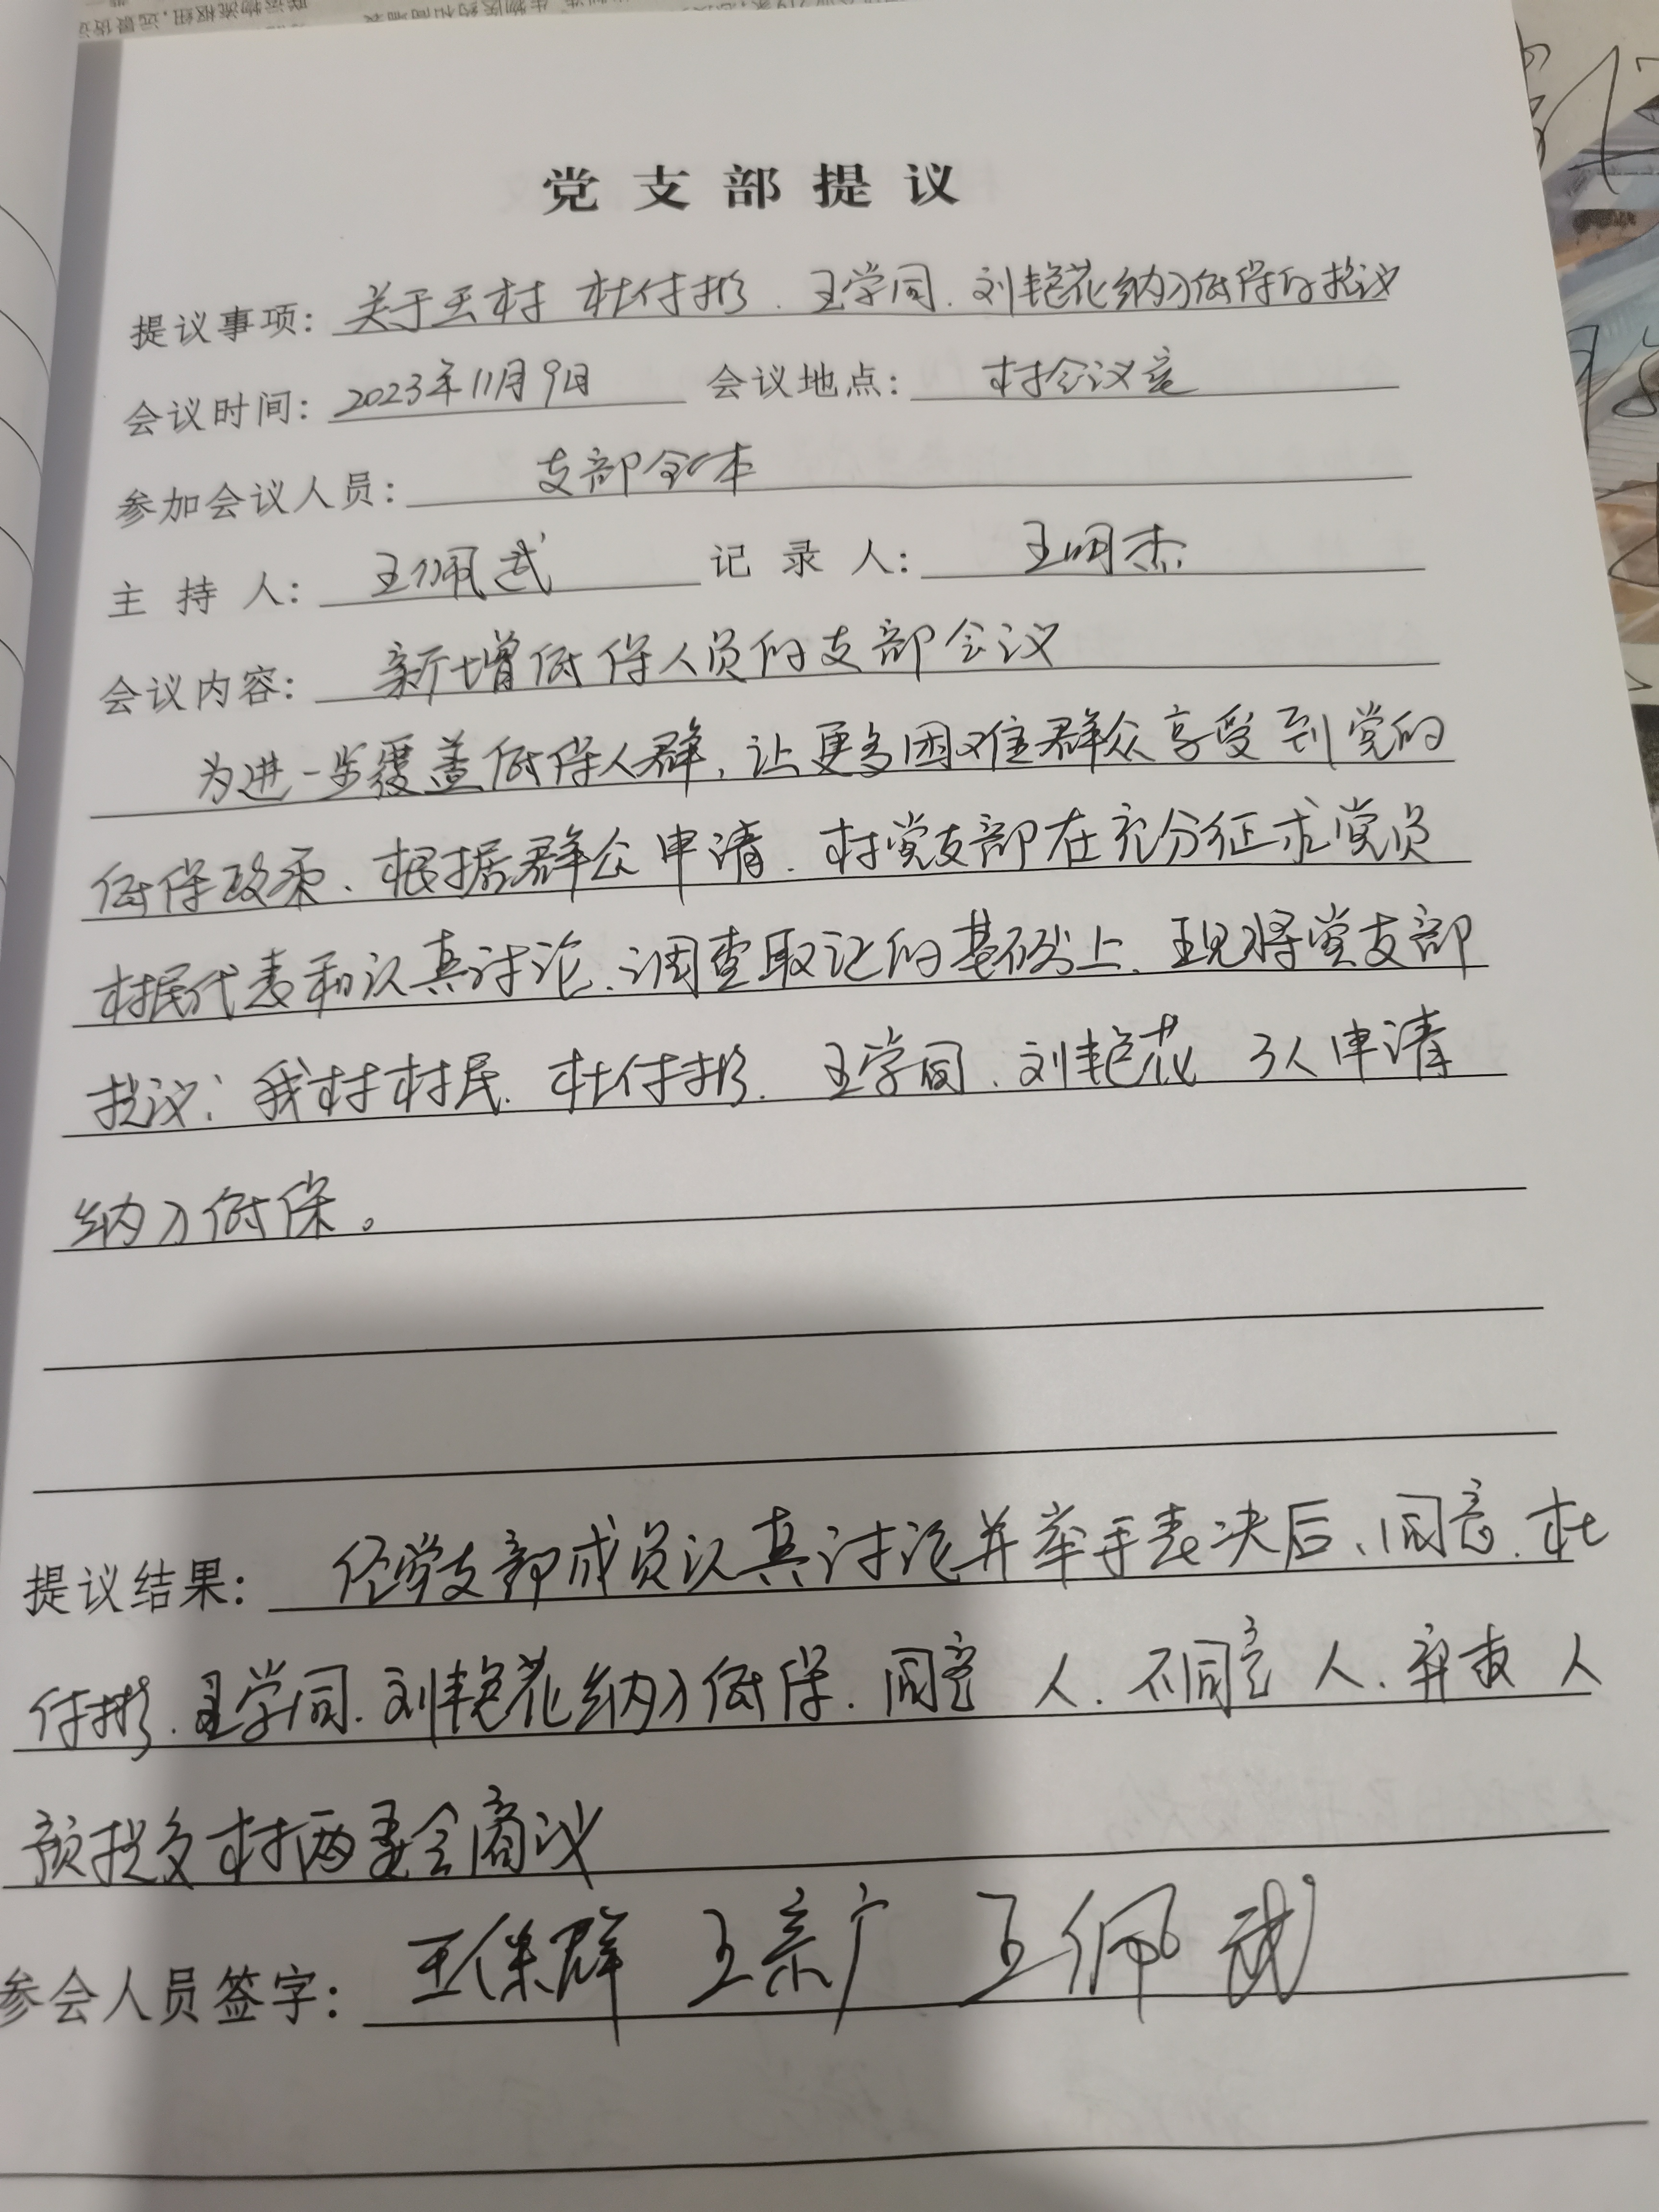 党支部提议
提议事项: 关于王村 杜付彬、王学同、刘艳花纳入低保的提议
会议时间: 2023年11月9日 会议地点: 村会议室
参加会议人员: 支部全体
主 持 人: 王佩武 记 录 人: 王明杰
会议内容: 新增低保人员的支部会议
为进一步覆盖低保人群,让更多困难群众享受到党的
低保政策、根据群众申请、村党支部在充分征求党员
村民代表和认真讨论、调查取证的基础上、现将党支部
提议: 我村村民、杜付彬、王学同、刘艳花 3人申请
纳入低保。
提议结果: 经党支部成员认真讨论并举手表决后、同意、杜
付彬、王学同、刘艳花纳入低保、同意 人、不同意 人、弃权 人
提交村两委会商议
参会人员签字: 王保群 王宗广 王佩武